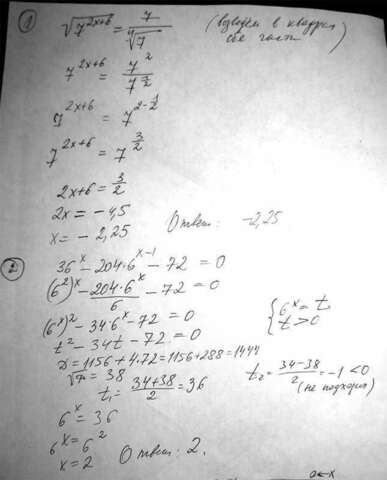 1
√7^(2x+6) = 7/⁴√7 (возводим в квадрат обе части)
7^(2x+6) = 7²/7^(1/2)
7^(2x+6) = 7^(2-1/2)
7^(2x+6) = 7^(3/2)
2x+6 = 3/2
2x = -4,5
x = -2,25 Ответ: -2,25
2
36^x - 204·6^(x-1) - 72 = 0
(6²)^x - 204·6^x/6 - 72 = 0
(6^x)² - 34·6^x - 72 = 0 { 6^x = t, t > 0
t² - 34t - 72 = 0
D = 1156 + 4·72 = 1156 + 288 = 1444
√D = 38 t₂ = (34-38)/2 = -1 < 0
t₁ = (34+38)/2 = 36 (не подходит)
6^x = 36
6^x = 6²
x = 2 Ответ: 2.